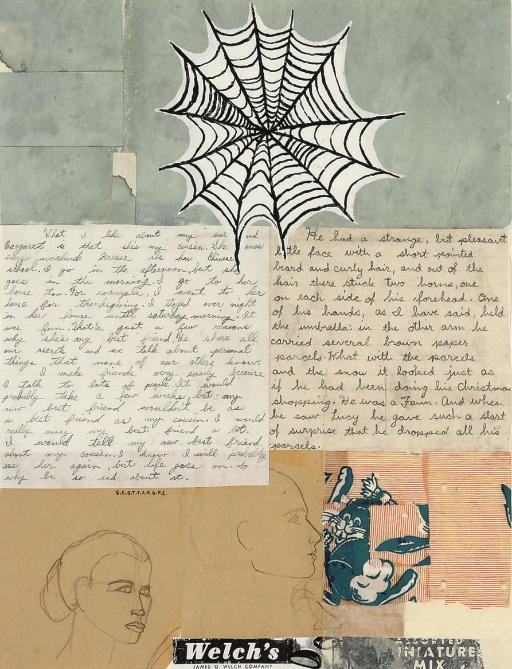 What I like about my and
Margaret is that she's my cousin. She
every weekend because she has Chinese
school. I go in the afternoon, but she
goes in the morning. I go to her
house too. For example, I went to her
house for thanksgiving. I stayed over night
in her house until saturday morning. It
was fun. That's just a few reasons
why she's my best friend. We share all
our secrets and we talk about personal
things that none of our others know.
I make friends very easily because
I talk to lots of people. It would
probably take a few weeks, but my
new best friend wouldn't be as
a best friend as my cousin. I would
really miss my best friend a lot.
I would tell my new best friend
about my cousin. I know I will probably
see her again, but life goes on. So
why be so sad about it.
He had a strange, but pleasant
little face with a short pointed
beard and curly hair, and out of the
hair there stuck two horns, one
on each side of his forehead. One
of his hands, as I have said, held
the umbrella in the other arm he
carried several brown paper
parcels. What with the parcels
and the snow it looked just as
if he had been doing his Christmas
shopping. He was a Faun. And when
he saw Lucy he gave such a start
of surprise that he dropped all his
parcels.
Welch's
JAMES O. WELCH COMPANY
ASSORTED
INIATURE
MIX